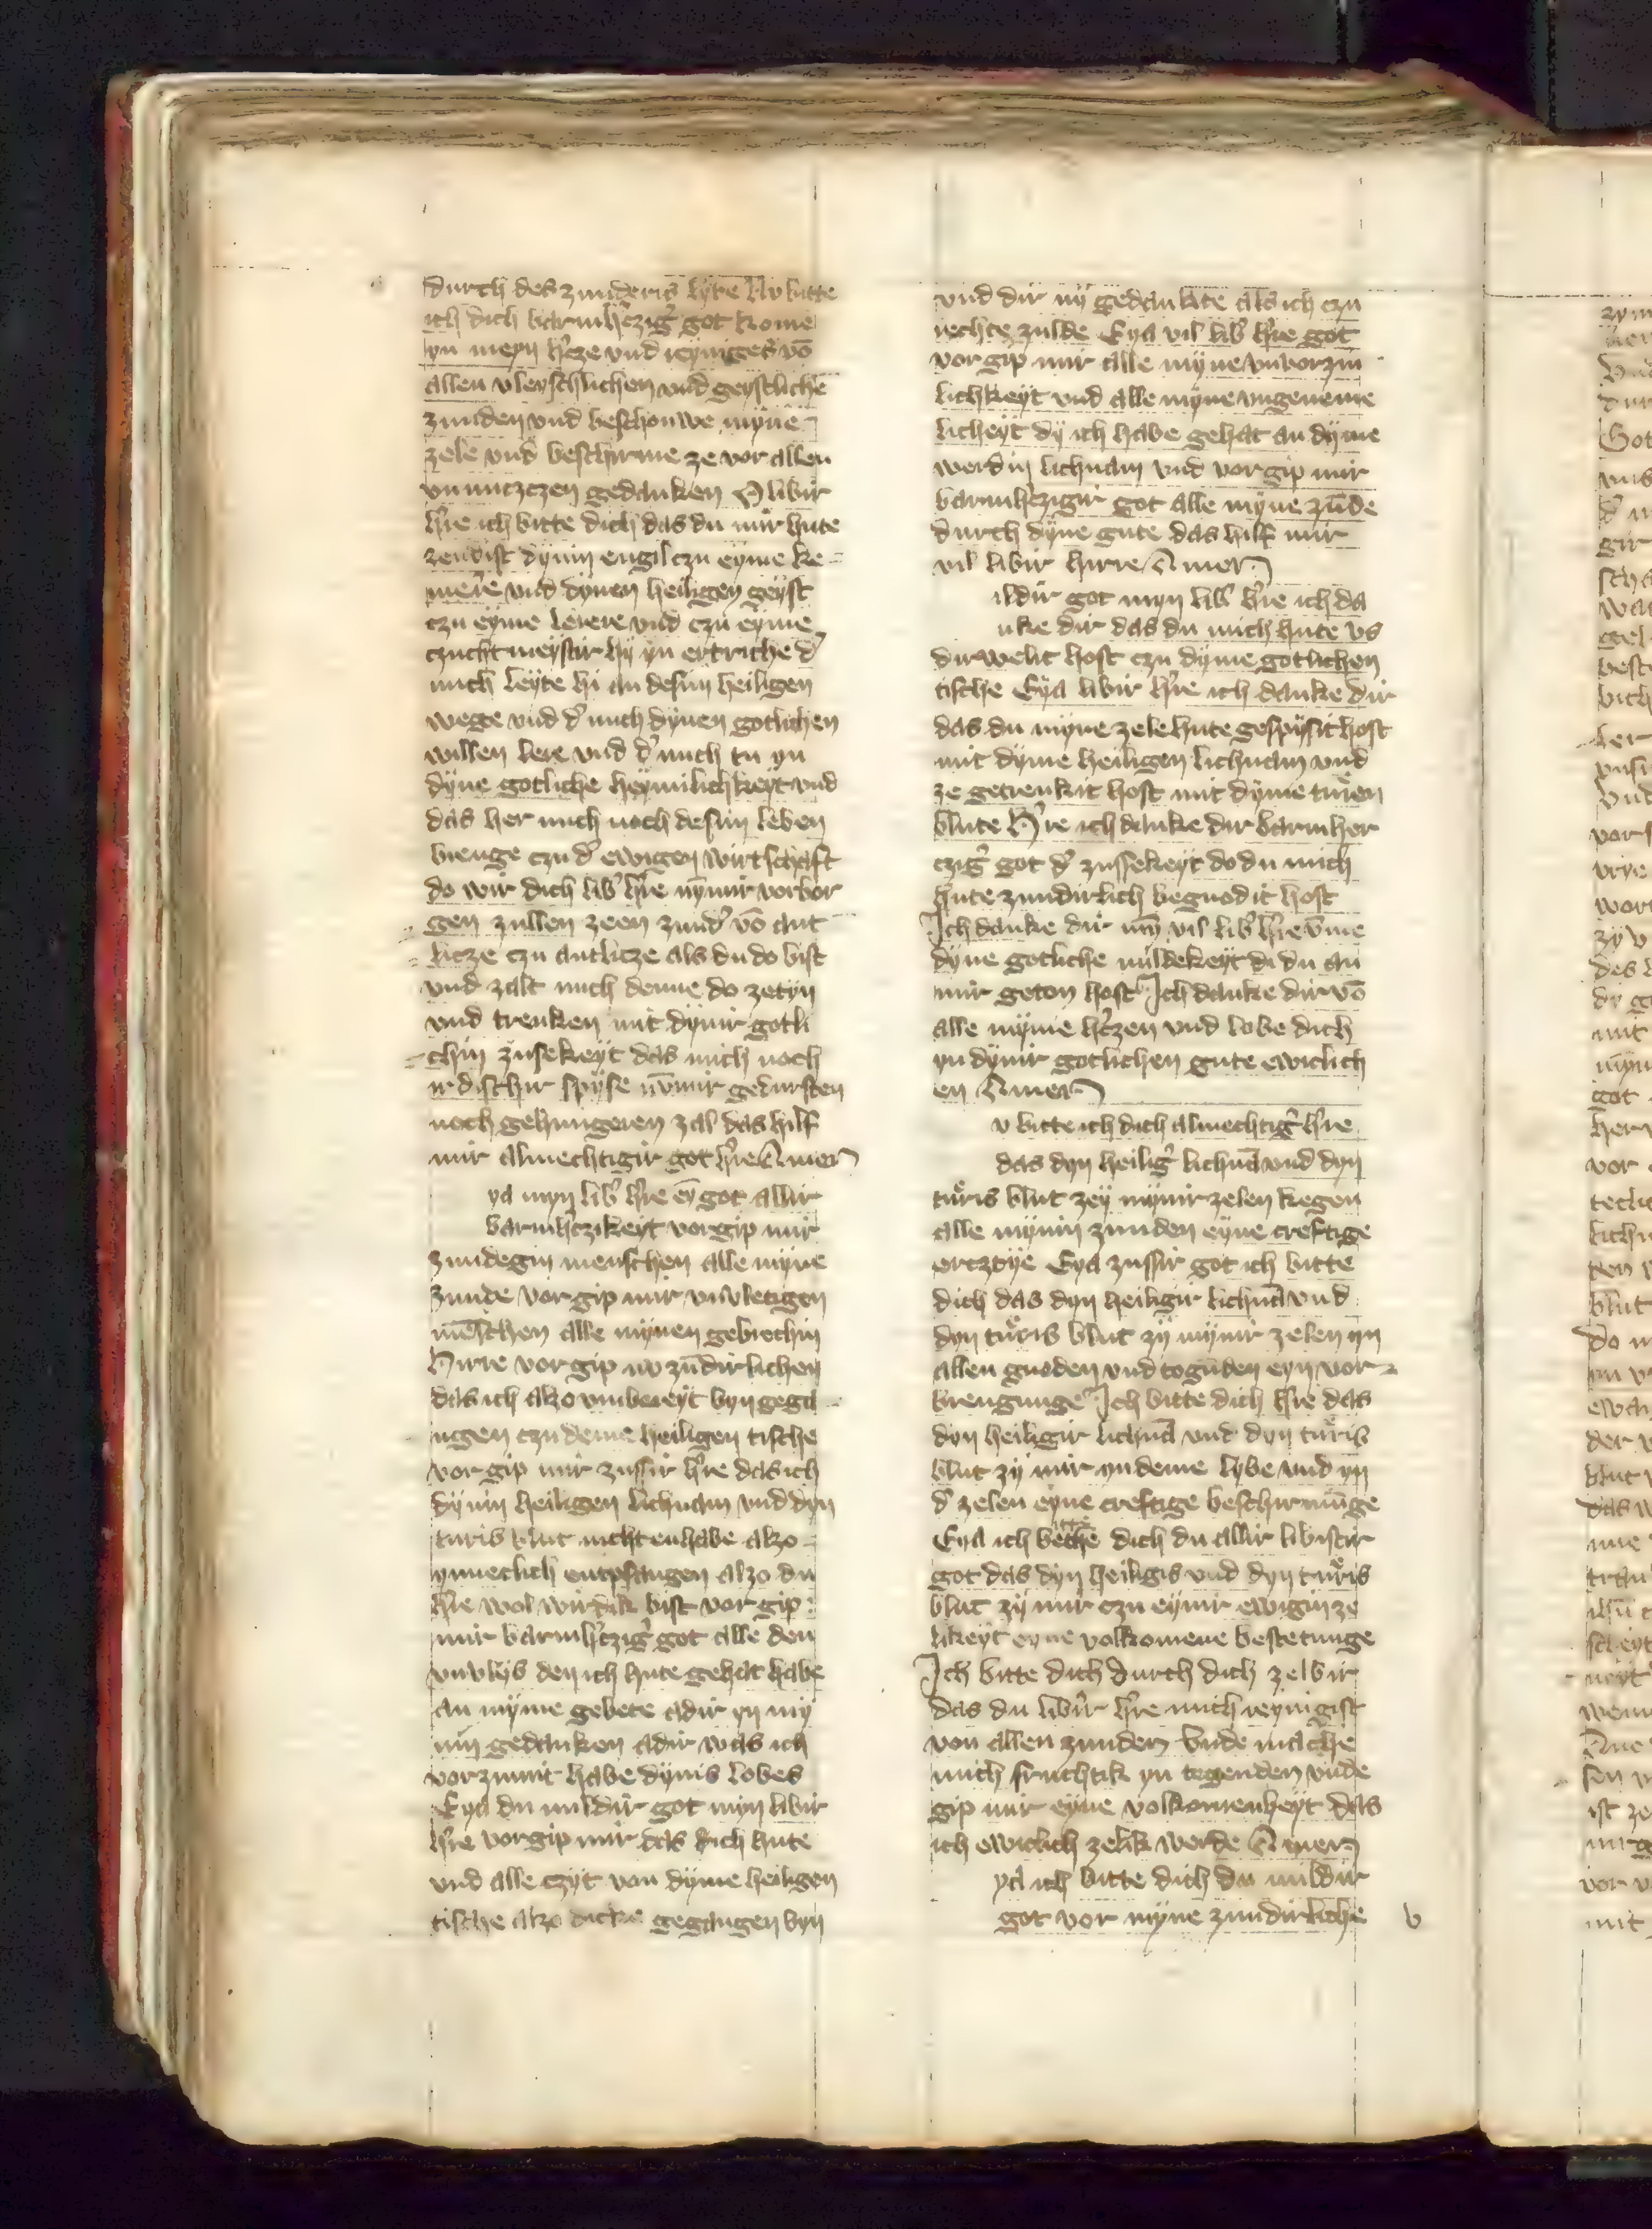 durch des zunderis lyte Nv bitte
ich dich barmh'czig' got kome
yn meyn h'cze vnd reyniges vō
allen vleyschlichen vnd geystliche
zunden vnd beschouwe myne
zele vnd beschirme ze vor allen
vnnuczczen gedanken O libir
h're ich bitte dich das du mir hute
zendist dynin engil czu eyme ke-
merre vnd dynen heiligen geyst
czu eyme lerere vnd czu eyme
czuchtmeystir hy yn ertriche d'
mich leyte hi an desim heiligen
wege vnd d' mich dynen gotlichen
willen lere vnd d' mich tu yn
dyne gotliche heymilichkeyt vnd
das her mich noch desim leben
brenge czu d' ewigen wirtschaft
do wir dich lib' h're nȳmir vorbor
gen zullen zeen zund' vō ant
licze czu antlicze als du do bist
vnd zalt mich denne do zetyn
vnd trenken mit dynir gotli
chin zusekeyt das mich noch
irdischir spyse nȳmir gedursten
noch gehungeren zal das hilf
mir almechtigir got h're Amen
ya myn lib' h're eȳ got allir
barmh'czikeyt vorgip mir
zundegin menschen alle myne
zunde vorgip mir vnvletigen
mēschen alle mynen gebrechin
Hirre vorgip mir zūdirlichen
das ich alzo vmbereyt byn gega
ngen czu deme heiligen tische
vorgip mir zussir h're das ich
dynin heiligen lichnam vnd dyn
turis blut nicht enhabe alzo
ynneclich entpfangen alzo du
h're wol wirdik bist vorgip
mir barmh'czig' got alle den
vnvlys den ich hute gehat habe
an myme gebete adir yn my
nin gedanken adir was ich
vorzumit habe dynis lobes
Eya du mildir got myn libir
h're vorgip mir das ich hute
vnd alle czyt van dyme heiligen
tische alzo dicke gegangen byn
vnd dir ny gedankte als ich czu
rechte zulde Eya vil lib' h're got
vorgip mir alle myne vnvorzin
lichkeyt vnd alle myne vngeneme
licheyt dy ich habe gehat an dyme
werdin lichnam vnd vorgip mir
barmh'czigir got alle myne zūde
durch dyne gute das hilf mir
vil libir hirre Amen
ildir got myn lib' h're ich da
nke dir das du mich hute vs
dirwelit host czu dyme gotlichen
tische Eya libir h're ich danke dir
das du myne zele hute gespysit host
mit dyme heiligen lichnam vnd
ze getrenkit host mit dyme turen
blute H're ich danke dir barmher
czig' got d' zussekeyt do du mich
hute zundirlich begnodit host
Ich danke dir myn vil lib' h're vm̄e
dyne gotliche mildekeyt di du an
mir geton host Ich danke dir vō
alle myme h'czen vnd lobe dich
yn dynir gotlichen gute ewiclich
en Amen
v bitte ich dich almechtig' h're
das dyn heilig' lichnā vnd dyn
turis blut zey mynir zelen kegen
alle mynin zunden eyne creftige
ercztye Eya zussir got ich bitte
dich das dyn heiligir lichnā vnd
dyn turis blut zy mynir zelen yn
allen gnoden vnd togūden eyn vor-
brengunge Ich bitte dich h're das
dyn heiligir lichnā vnd dyn turis
blut zy mir yn deme lybe vnd yn
d' zelen eyne creftige beschirmūge
Eya ich bethe dich du allir libistir
got das dyn heiligis vnd dyn turis
blut zy mir czu eynir ewigin ze
likeyt eyne volkomene bestetunge
Ich bitte dich durch dich zelbir
das du libir h're mich reynigist
von allen zunden vnde mache
mich fruchtik yn togenden vnde
gip mir eyne volkomenheyt das
ich ewiclich zelik werde Amen
ya ich bitte dich du mildir
got vor myne zundirliche
b